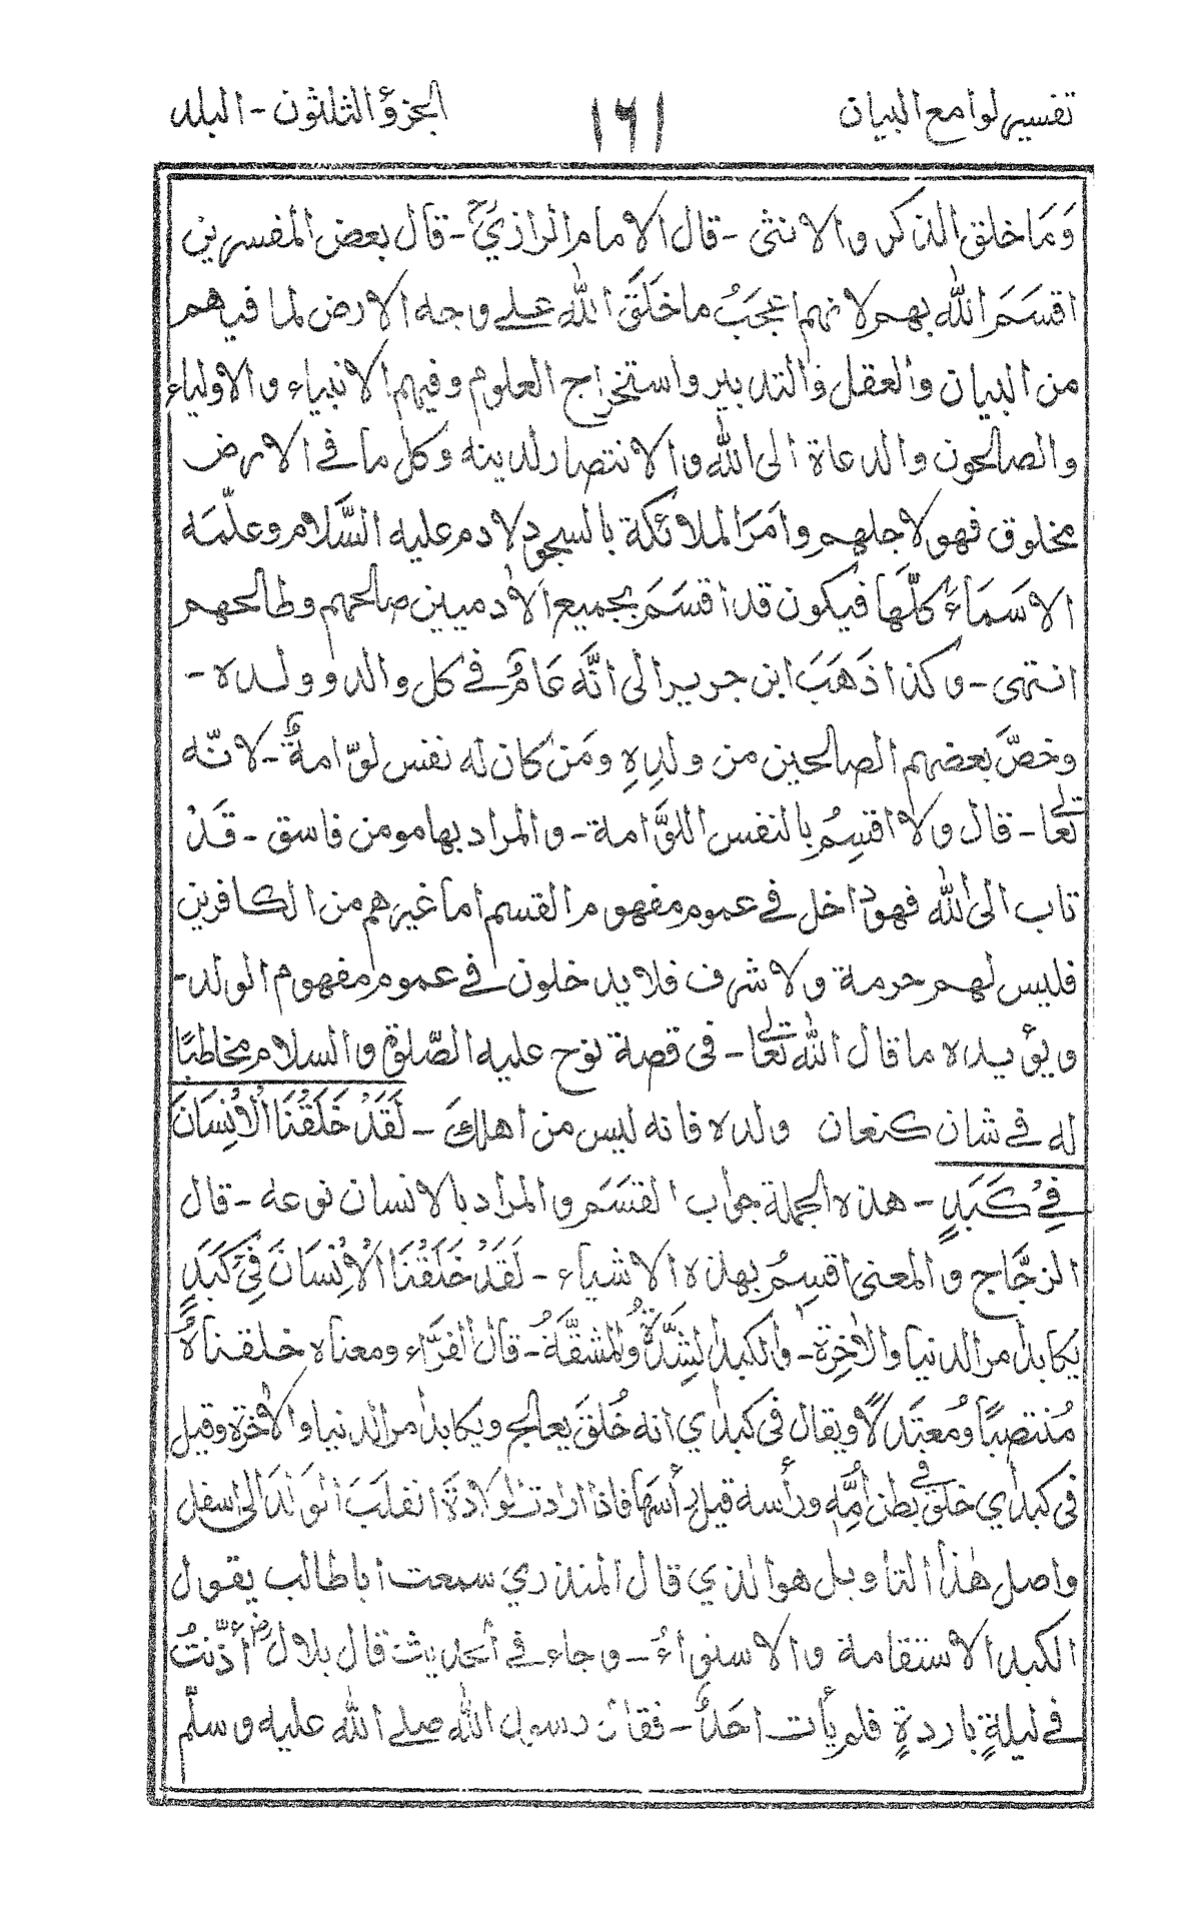 تفسير لوامع البيان
١٦١
الجزؤ الثلثون - البلد
وَمَا خلق الذكر والانثى - قال الامام الرازيؒ - قال بعض المفسرين
اقسَمَ الله بهم لانهم اعجَبُ ما خَلَقَ الله على وجه الارض لما فيهم
من البيان والعقل والتدبير واستخراج العلوم وفيهم الانبياء والاولياء
والصالحون والدعاة الى الله والانتصار لدينه وكل ما في الارض
مخلوق فهو لاجلهم وامَرَ الملائكة بالسجود لادم عليه السَّلام وعلّمَه
الاسَمَاءَ كلَّهَا فيكون قد اقسَمَ بجميع الآدميين صالحهم وطالحهم
انتهى - وكذا ذَهَبَ ابن جرير الى انَّه عَامٌ في كل والد وولده -
وخصَّ بعضهم الصالحين من ولدِهِ ومَن كان له نفس لوّامةٌ - لانّه
تعالى - قال ولا اقسِمُ بالنفس اللوَّامة - والمراد بها مومن فاسق - قَدْ
تاب الى الله فهو داخل في عموم مفهوم القسم اما غيرهم من الكافرين
فليس لهم حرمة ولا شرف فلا يدخلون في عموم مفهوم الولد -
ويؤيده ما قال الله تعالى - فى قصة نوح عليه الصّلوٰة والسلام مخاطبًا
له في شان كنعان ولده فانه ليس من اهلكَ - لَقَدْ خَلَقْنَا الْاِنْسَانَ
فِيْ كَبَدٍ - هذه الجملة جواب القسَم والمراد بالانسان نوعه - قال
الزجَّاج والمعنى اقسِمُ بهذه الاشياء - لَقَدْ خَلَقْنَا الْاِنْسَانَ فِيْ كَبَدٍ
يكابد امر الدنيا والآخِرة - والكبد الشِدَّةُ والمشقَّةُ - قال الفرَّاء ومعناه خلقناهُ
مُنتصبًا ومُعتَدلًا ويقال فى كبد اي انه خُلقَ يعالج ويكابد امر الدنيا والآخرة وقيل
فى كبد اي خلق في بطن اُمِّه ورأسه قيل رأسها فاذا ارادت الولادةَ انقلَبَ الوَلَدُ الى اسفل
واصل هٰذا التاويل هو الذي قال المنذري سمعت ابا طالب يقول
الكبد الاستقامة والاستواءُ - وجاء في الحديث قال بلالؓ أذّنتُ
في ليلةٍ باردةٍ فلم يأت احَدٌ - فقال رسول الله صلى الله عليه وسلّم